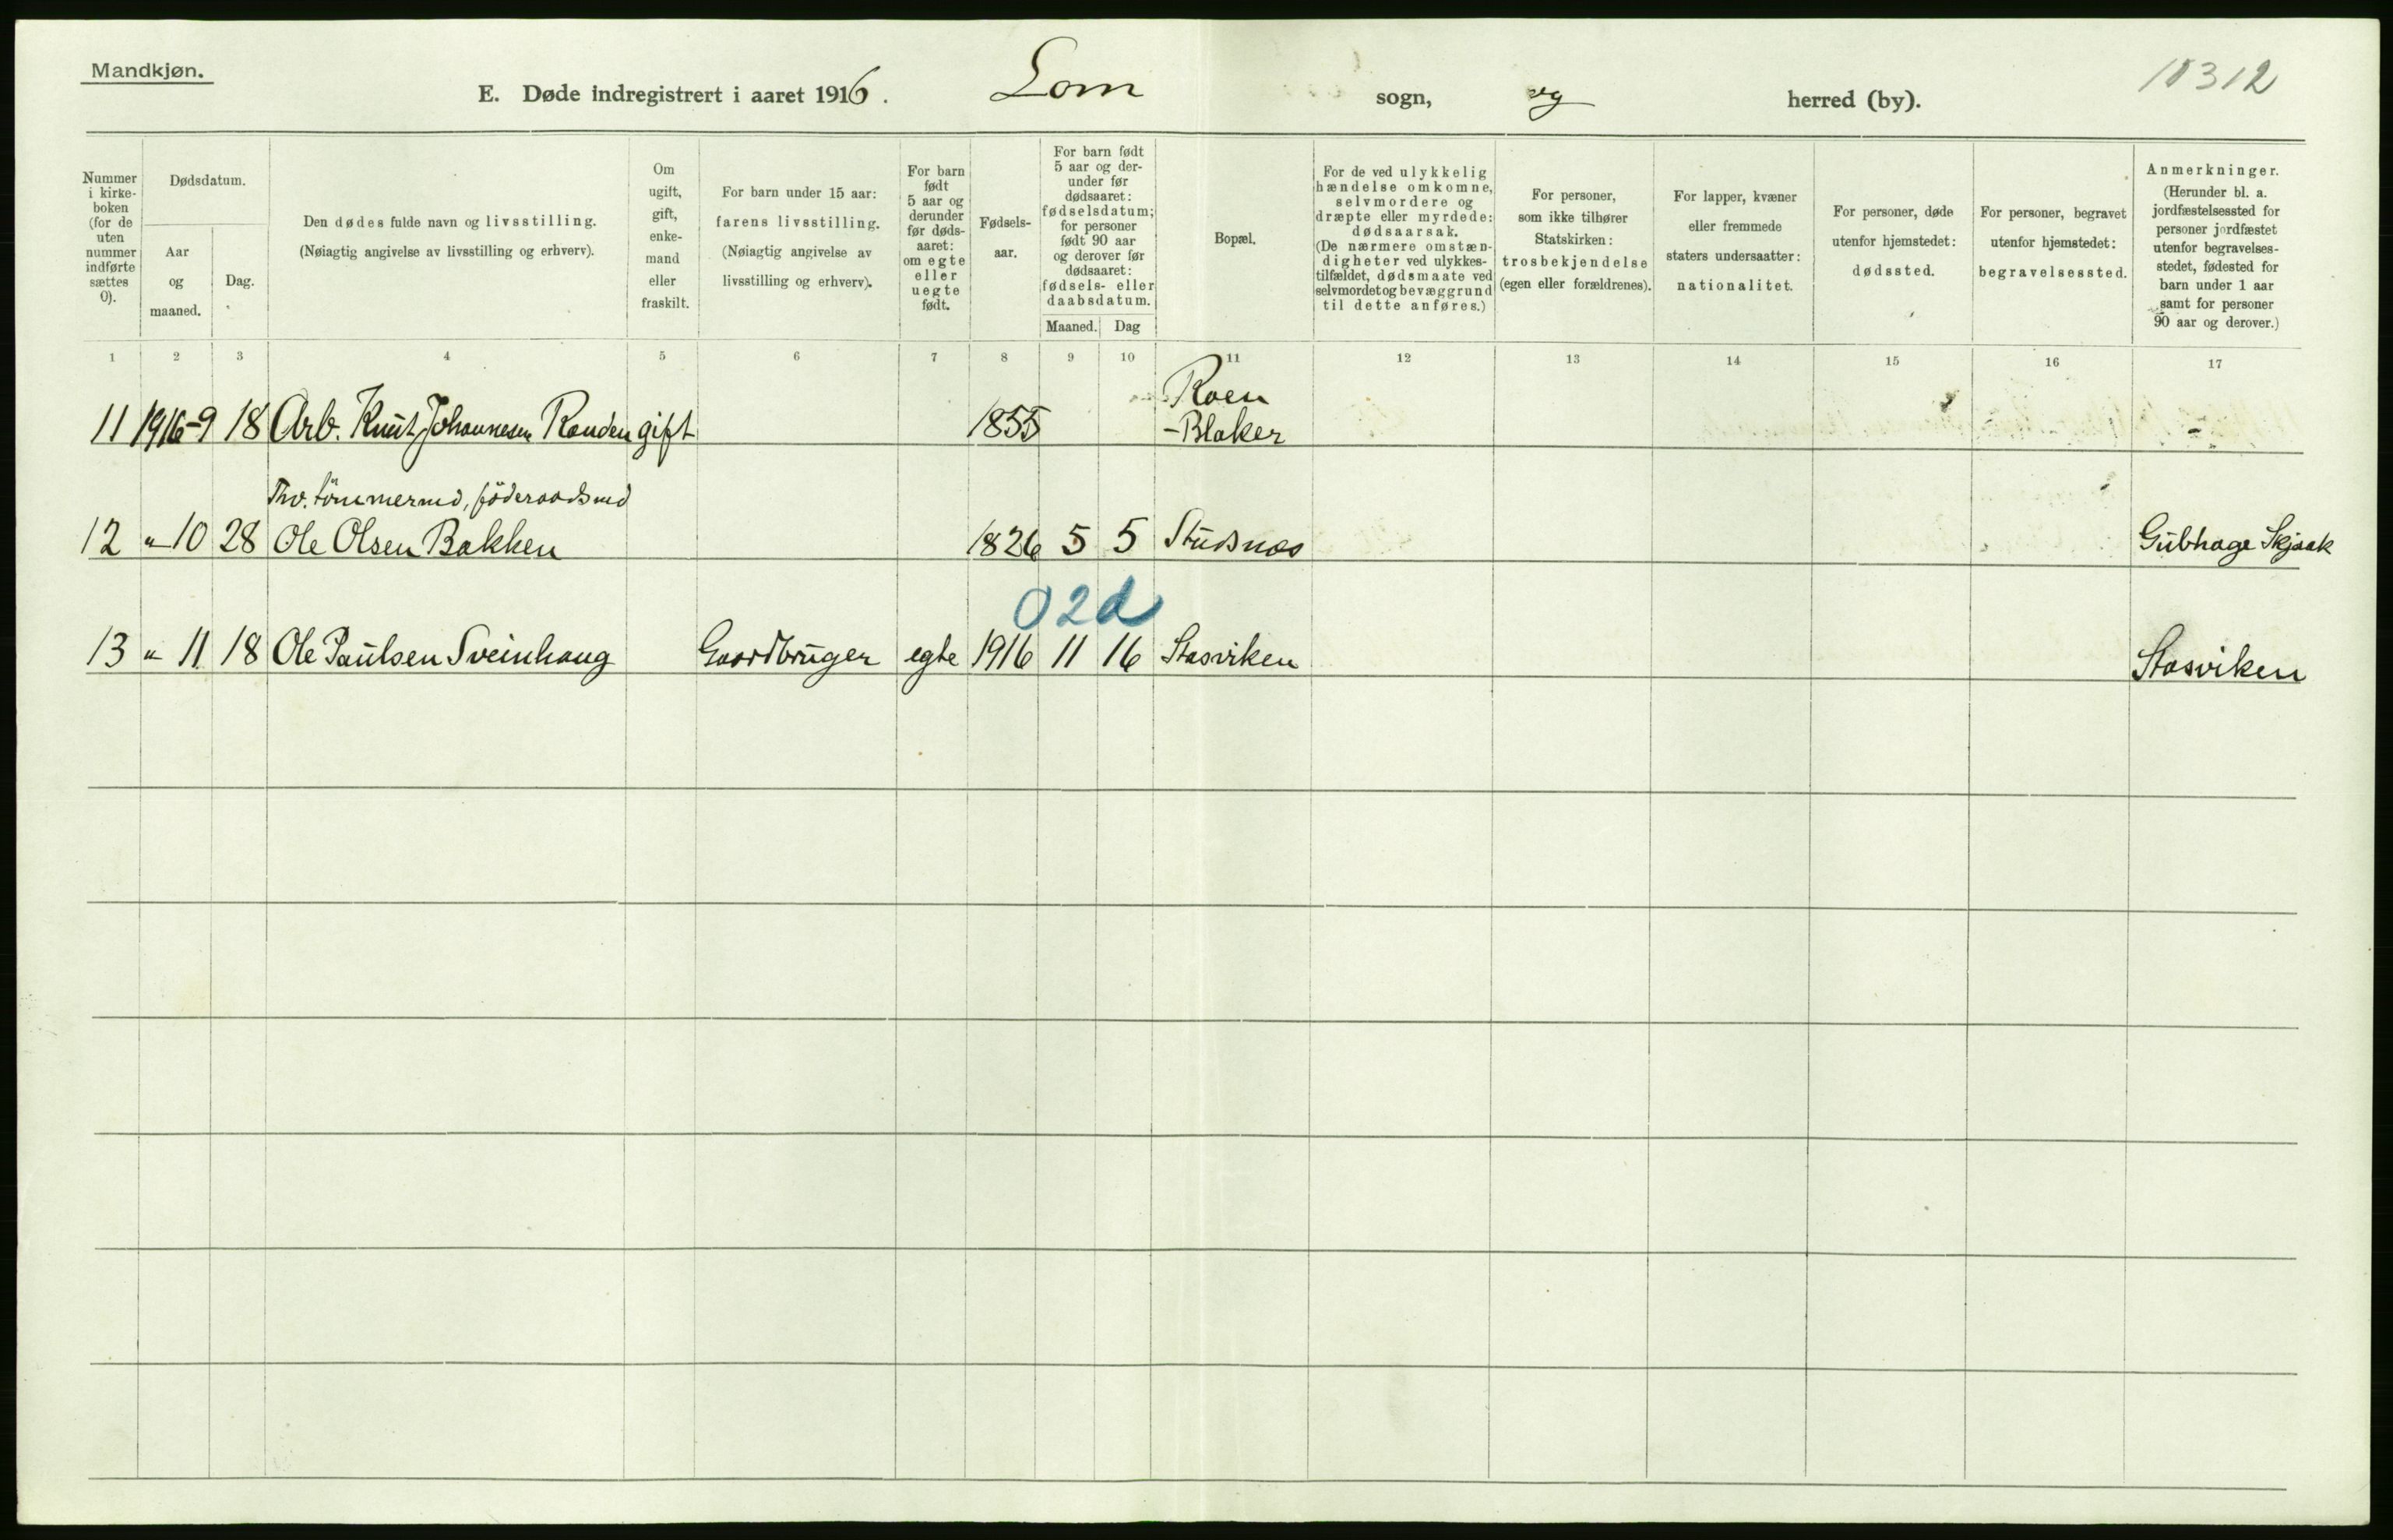 Mandkjøn.
E. Døde indregistrert i aaret 1916. Lom sogn, og herred (by).
10312
Nummer
i kirke-
boken
(for de
uten
nummer
indførte
sættes
0).
Dødsdatum.
Aar
og
maaned.
Dag.
Den dødes fulde navn og livsstilling.
(Nøiagtig angivelse av livsstilling og erhverv).
Om
ugift,
gift,
enke-
mand
eller
fraskilt.
For barn under 15 aar:
farens livsstilling.
(Nøiagtig angivelse av
livsstilling og erhverv).
For barn
født
5 aar og
derunder
før døds-
aaret:
om egte
eller
uegte
født.
Fødsels-
aar.
For barn født
5 aar og der-
under før
dødsaaret:
fødselsdatum;
for personer
født 90 aar
og derover før
dødsaaret:
fødsels- eller
daabsdatum.
Maaned. Dag
Bopæl.
For de ved ulykkelig
hændelse omkomne,
selvmordere og
dræpte eller myrdede:
dødsaarsak.
(De nærmere omstæn-
digheter ved ulykkes-
tilfældet, dødsmaate ved
selvmordet og bevæggrund
til dette anføres.)
For personer,
som ikke tilhører
Statskirken:
trosbekjendelse
(egen eller forældrenes).
For lapper, kvæner
eller fremmede
staters undersaatter:
nationalitet.
For personer, døde
utenfor hjemstedet:
dødssted.
For personer, begravet
utenfor hjemstedet:
begravelsessted.
Anmerkninger.
(Herunder bl. a.
jordfæstelsessted for
personer jordfæstet
utenfor begravelses-
stedet, fødested for
barn under 1 aar
samt for personer
90 aar og derover.)
1 2 3 4 5 6 7 8 9 10 11 12 13 14 15 16 17
Roen
11 1916-9 18 Arb. Knut Johannesen Randen gift 1855 -Blaker -
tömmermd, föderaadsmd
12 " 10 28 Ole Olsen Bakken 1826 5 5 Studsnes Gubhage Skjaak
02d
13 " 11 18 Ole Paulsen Sveinhaug Gaardbruger egte 1916 11 16 Stasviken Stasviken